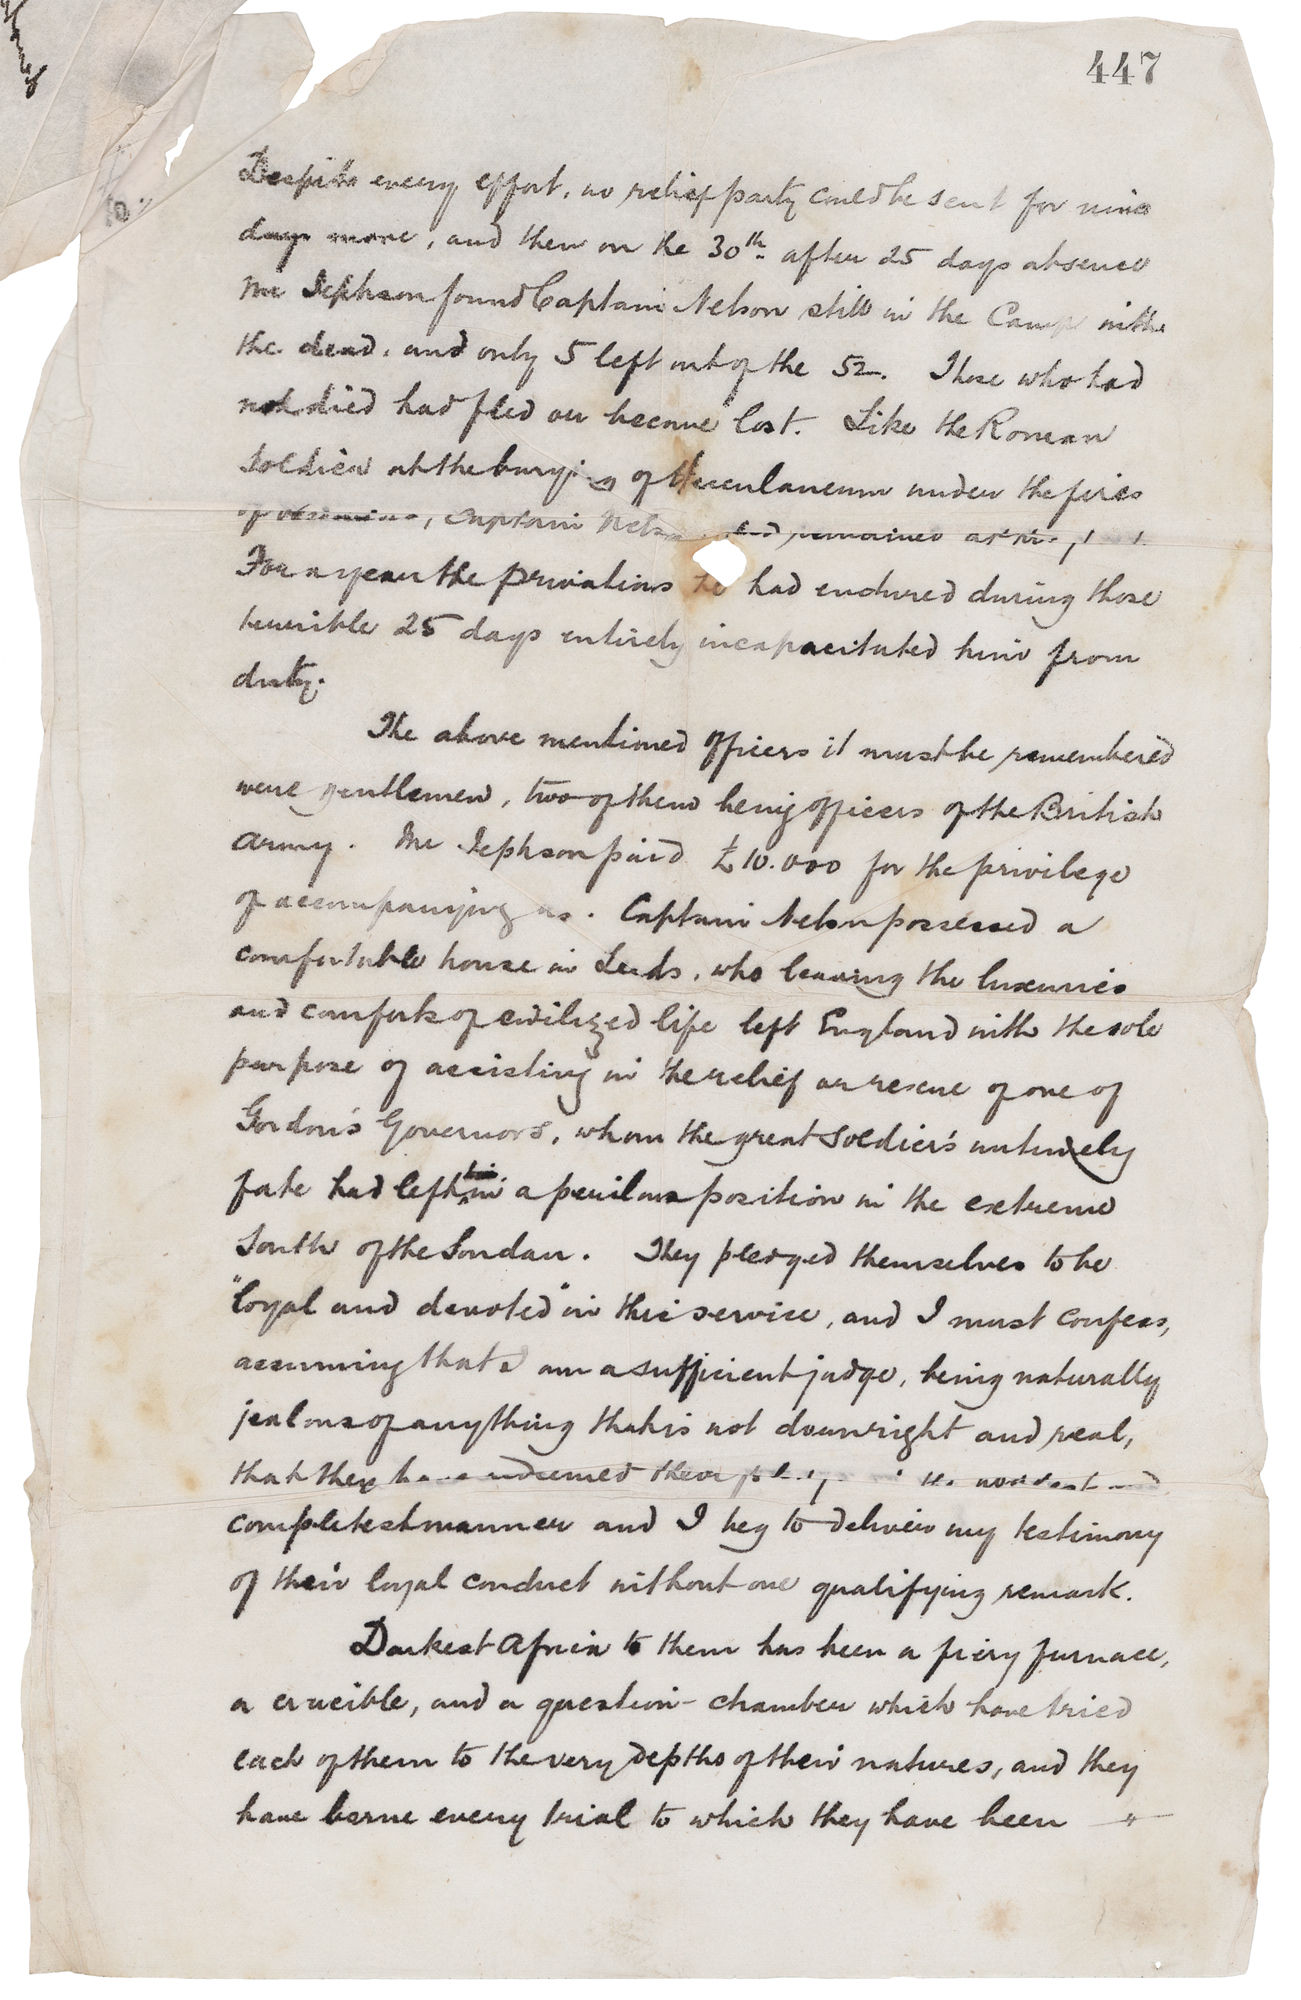 447
Despite every effort, no relief party could be sent for nine
days more, and then on the 30th after 25 days absence
Mr Jephson found Captain Nelson still in the Camp with
the dead, and only 5 left out of the 52. Those who had
not died had fled or become lost. Like the Roman
Soldier at the burying of Herculaneum under the fires
of Vesuvius, Captain Nelson had remained at his
For a year the privations he had endured during those
terrible 25 days entirely incapacitated him from
duty.
The above mentioned officers it must be remembered
were gentlemen, two of them being officers of the British
Army. Mr Jephson paid £10.000 for the privilege
of accompanying us. Captain Nelson possessed a
comfortable house in Leeds, who leaving the luxuries
and comforts of civilized life left England with the sole
purpose of assisting in the relief or rescue of one of
Gordon's Governors, whom the great Soldier's untimely
fate had left in a perilous position in the extreme
South of the Soudan. They pledged themselves to be
"loyal and devoted" in this service, and I must confess,
assuming that I am a sufficient judge, being naturally
jealous of anything that is not downright and real,
that they have redeemed their in the and
completest manner and I beg to deliver my testimony
of their loyal conduct without one qualifying remark.
Darkest Africa to them has been a fiery furnace,
a crucible, and a question-chamber which have tried
each of them to the very depths of their natures, and they
have borne every trial to which they have been